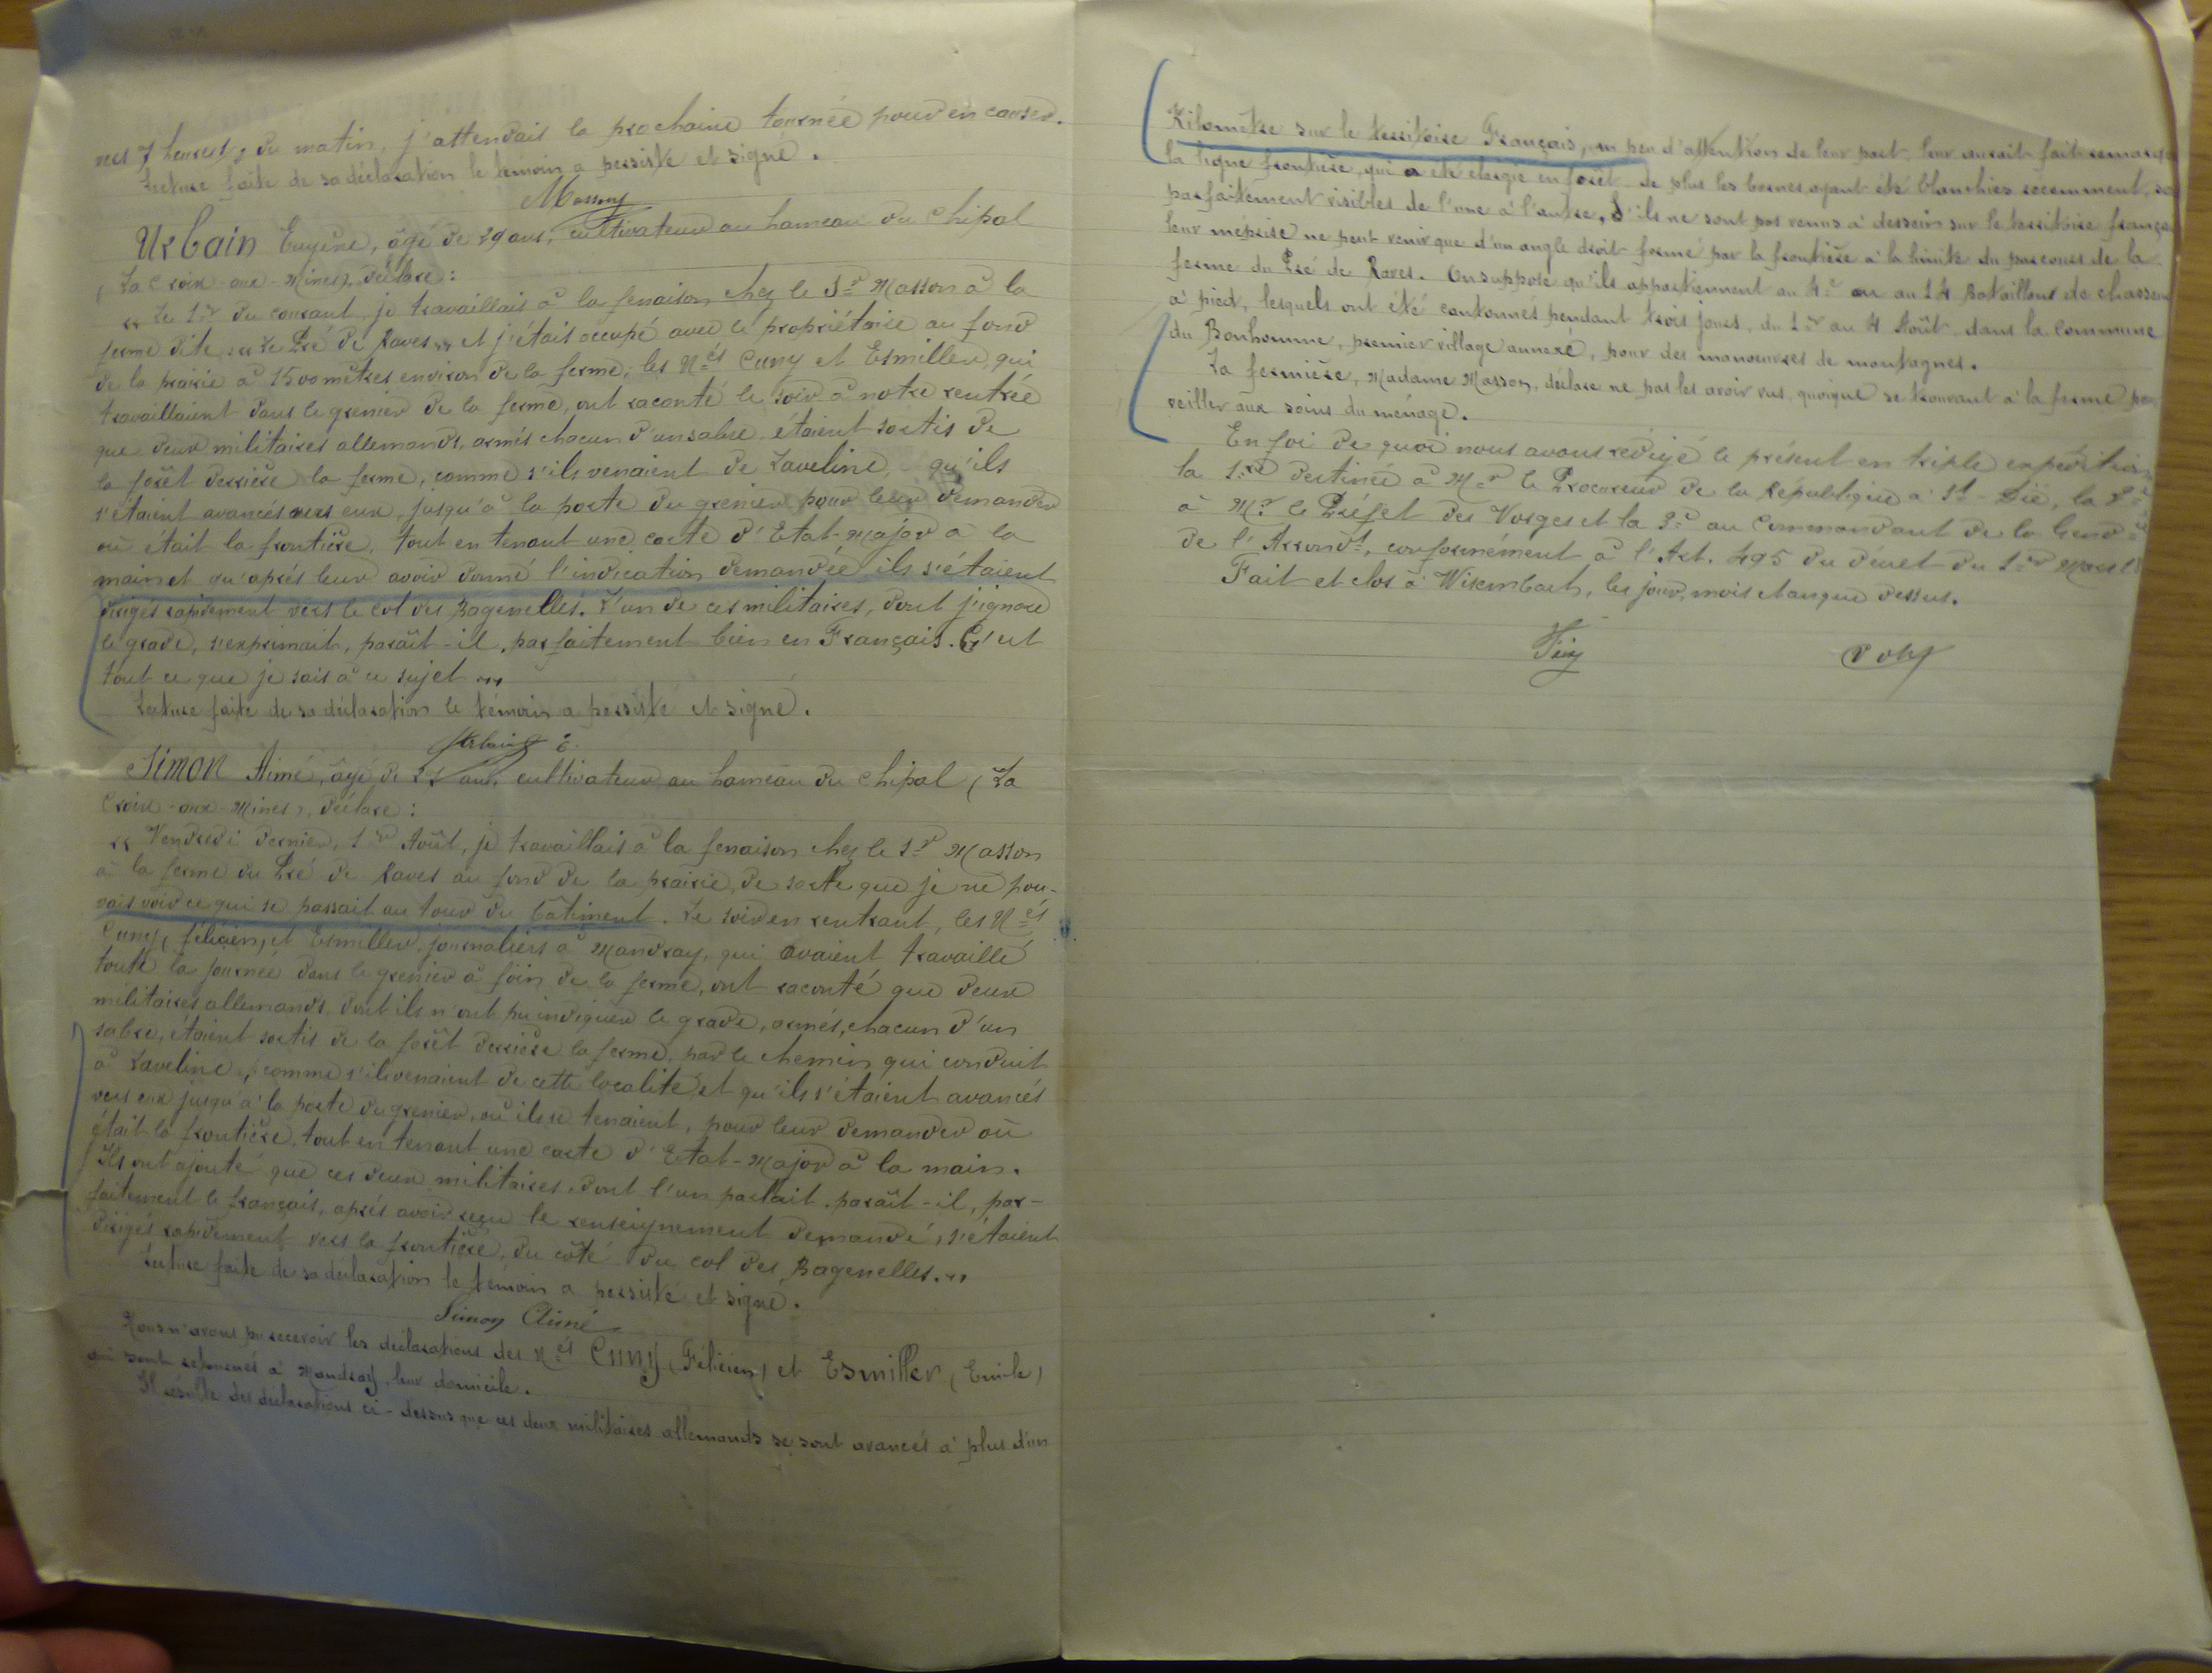 vers 7 heures, du matin, j'attendais la prochaine tournée pour en causer.
Lecture faite de sa déclaration le témoin a persisté et signé.
Masson
Urbain Eugène, âgé de 29 ans, cultivateur au hameau du Chipal
(La Croix-aux-Mines), déclare:
"Le 1er du courant, je travaillais à la fenaison chez le Sr Masson à la
ferme dite "Le Pré de Raves" et j'étais occupé avec le propriétaire au fond
de la prairie à 1500 mètres environ de la ferme; les Nés Cuny et Esmiller, qui
travaillaient dans le grenier de la ferme, ont raconté le soir à notre rentrée
que deux militaires allemands, armés chacun d'un sabre, étaient sortis de
la forêt derrière la ferme, comme s'ils venaient de Laveline, qu'ils
s'étaient avancés vers eux, jusqu'à la porte du grenier pour leur demander
où était la frontière, tout en tenant une carte d'Etat-Major à la
main et qu'après leur avoir donné l'indication demandée ils s'étaient
dirigés rapidement vers le Col des Bagenelles. L'un de ces militaires, dont j'ignore
le grade, s'exprimait, paraît-il, parfaitement bien en Français. C'est
tout ce que je sais à ce sujet"
Lecture faite de sa déclaration le témoin a persisté et signé.
Urbain E.
Simon Aimé, âgé de ans, cultivateur au hameau du Chipal (La
Croix-aux-Mines), déclare:
"Vendredi dernier, 1er Août, je travaillais à la fenaison chez le Sr Masson
à la ferme du Pré de Raves au fond de la prairie, de sorte que je ne pou-
vais voir ce qui se passait au tour du bâtiment. Le soir en rentrant, les Nés
Cuny, félicien, et Esmiller, journaliers à Mandray, qui avaient travaillé
toute la journée dans le grenier à foin de la ferme, ont raconté que deux
militaires allemands, dont ils n'ont pu indiquer le grade, armés, chacun d'un
sabre, étaient sortis de la forêt derrière la ferme, par le chemin qui conduit
à Laveline, comme s'ils venaient de cette localité et qu'ils s'étaient avancés
vers eux jusqu'à la porte du grenier, où ils se tenaient, pour leur demander où
était la frontière, tout en tenant une carte d'Etat-Major à la main.
Ils ont ajouté que ces deux militaires, dont l'un parlait, paraît-il, par-
faitement le français, après avoir reçu le renseignement demandé, s'étaient
dirigés rapidement vers la frontière, du côté du col des Bagenelles."
Lecture faite de sa déclaration le témoin a persisté et signé.
Simon Aimé
Nous n'avons pu recevoir les déclarations des Nés Cuny (Félicien) et Esmiller (Emile)
qui sont retournés à Mandray, leur domicile.
Il résulte des déclarations ci-dessus que ces deux militaires allemands se sont avancés à plus d'un
Kilomètre sur le territoire Français, un peu d'attention de leur part, leur aurait fait
la ligne frontière, qui a été élargie en forêt. De plus les bornes, ayant été blanchies récemment,
parfaitement visibles de l'une à l'autre. S'ils ne sont pas venus à dessein sur le territoire
leur méprise ne peut venir que d'un angle droit formé par la frontière à la limite du parcours de la
ferme du Pré de Raves. On suppose qu'ils appartiennent au 4e ou au 14 Bataillons de chasseurs
à pied, lesquels ont été cantonnés pendant trois jours, du 1er au 4 Août, dans la commune
du Bonhomme, premier village annexé, pour des manoeuvres de montagnes.
La fermière, Madame Masson, déclare ne pas les avoir vus, quoique se trouvant à la ferme pour
veiller aux soins du ménage.
En foi de quoi nous avons rédigé le présent en triple expédition
la 1re destinée à Mr le Procureur de la République à St-Dié, la 2e
à Mr le Préfet des Vosges et la 3e au Commandant de la Gend.
de l'Arrondt, conformément à l'Art. 495 du décret du 1er Mars
Fait et clos à Wisembach, les jour, mois et an que dessus.